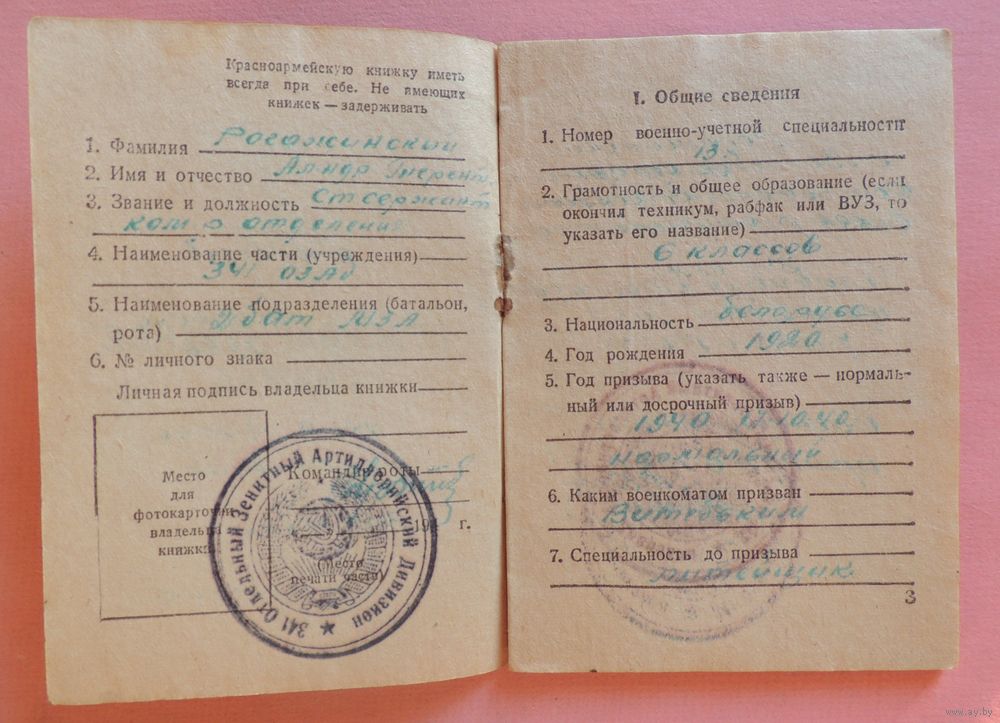 Красноармейскую книжку иметь
всегда при себе. Не имеющих
книжек — задерживать
1. Фамилия Рогажинский
2. Имя и отчество
3. Звание и должность Ст сержант
ком-р отделения
4. Наименование части (учреждения)
341 ОЗАД
5. Наименование подразделения (батальон,
рота) 2 бат МЗА
6. № личного знака
Личная подпись владельца книжки
Место
для
фотокарточки
владельца
книжки
Командир роты
19 г.
(Место
печати части)
341 Отдельный Зенитный Артиллерийский Дивизион
I. Общие сведения
1. Номер военно-учетной специальности
13
2. Грамотность и общее образование (если
окончил техникум, рабфак или ВУЗ, то
указать его название)
6 классов
3. Национальность белорус
4. Год рождения 1920
5. Год призыва (указать также — нормаль-
ный или досрочный призыв)
1940 11.10.40.
нормальный
6. Каким военкоматом призван
Витебским
7. Специальность до призыва
литейщик
3
www.ay.by